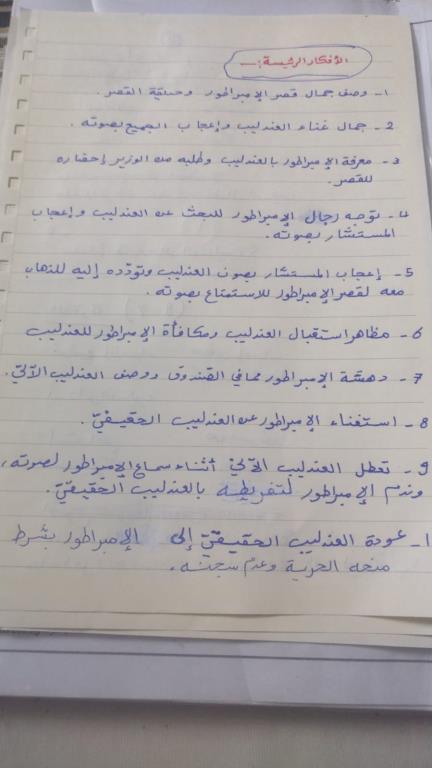 الأفكار الرئيسة :-
1- وصف جمال قصر الإمبراطور وحديقة القصر.
2- جمال غناء العندليب وإعجاب الجميع بصوته.
3- معرفة الإمبراطور بالعندليب وطلبه من الوزير إحضاره
للقصر.
4- توجه رجال الإمبراطور للبحث عن العندليب وإعجاب
المستشار بصوته.
5- إعجاب المستشار بصوت العندليب وتودّده إليه للذهاب
معه لقصر الإمبراطور للاستمتاع بصوته.
6- مظاهر استقبال العندليب ومكافأة الإمبراطور للعندليب
7- دهشة الإمبراطور مما في الصندوق ووصف العندليب الآليّ.
8- استغناء الإمبراطور عن العندليب الحقيقيّ.
9- تعطل العندليب الآليّ أثناء سماع الإمبراطور لصوته،
وندم الإمبراطور لتفريطه بالعندليب الحقيقيّ.
1- عودة العندليب الحقيقيّ إلى الإمبراطور بشرط
منحه الحرية وعدم سجنه.